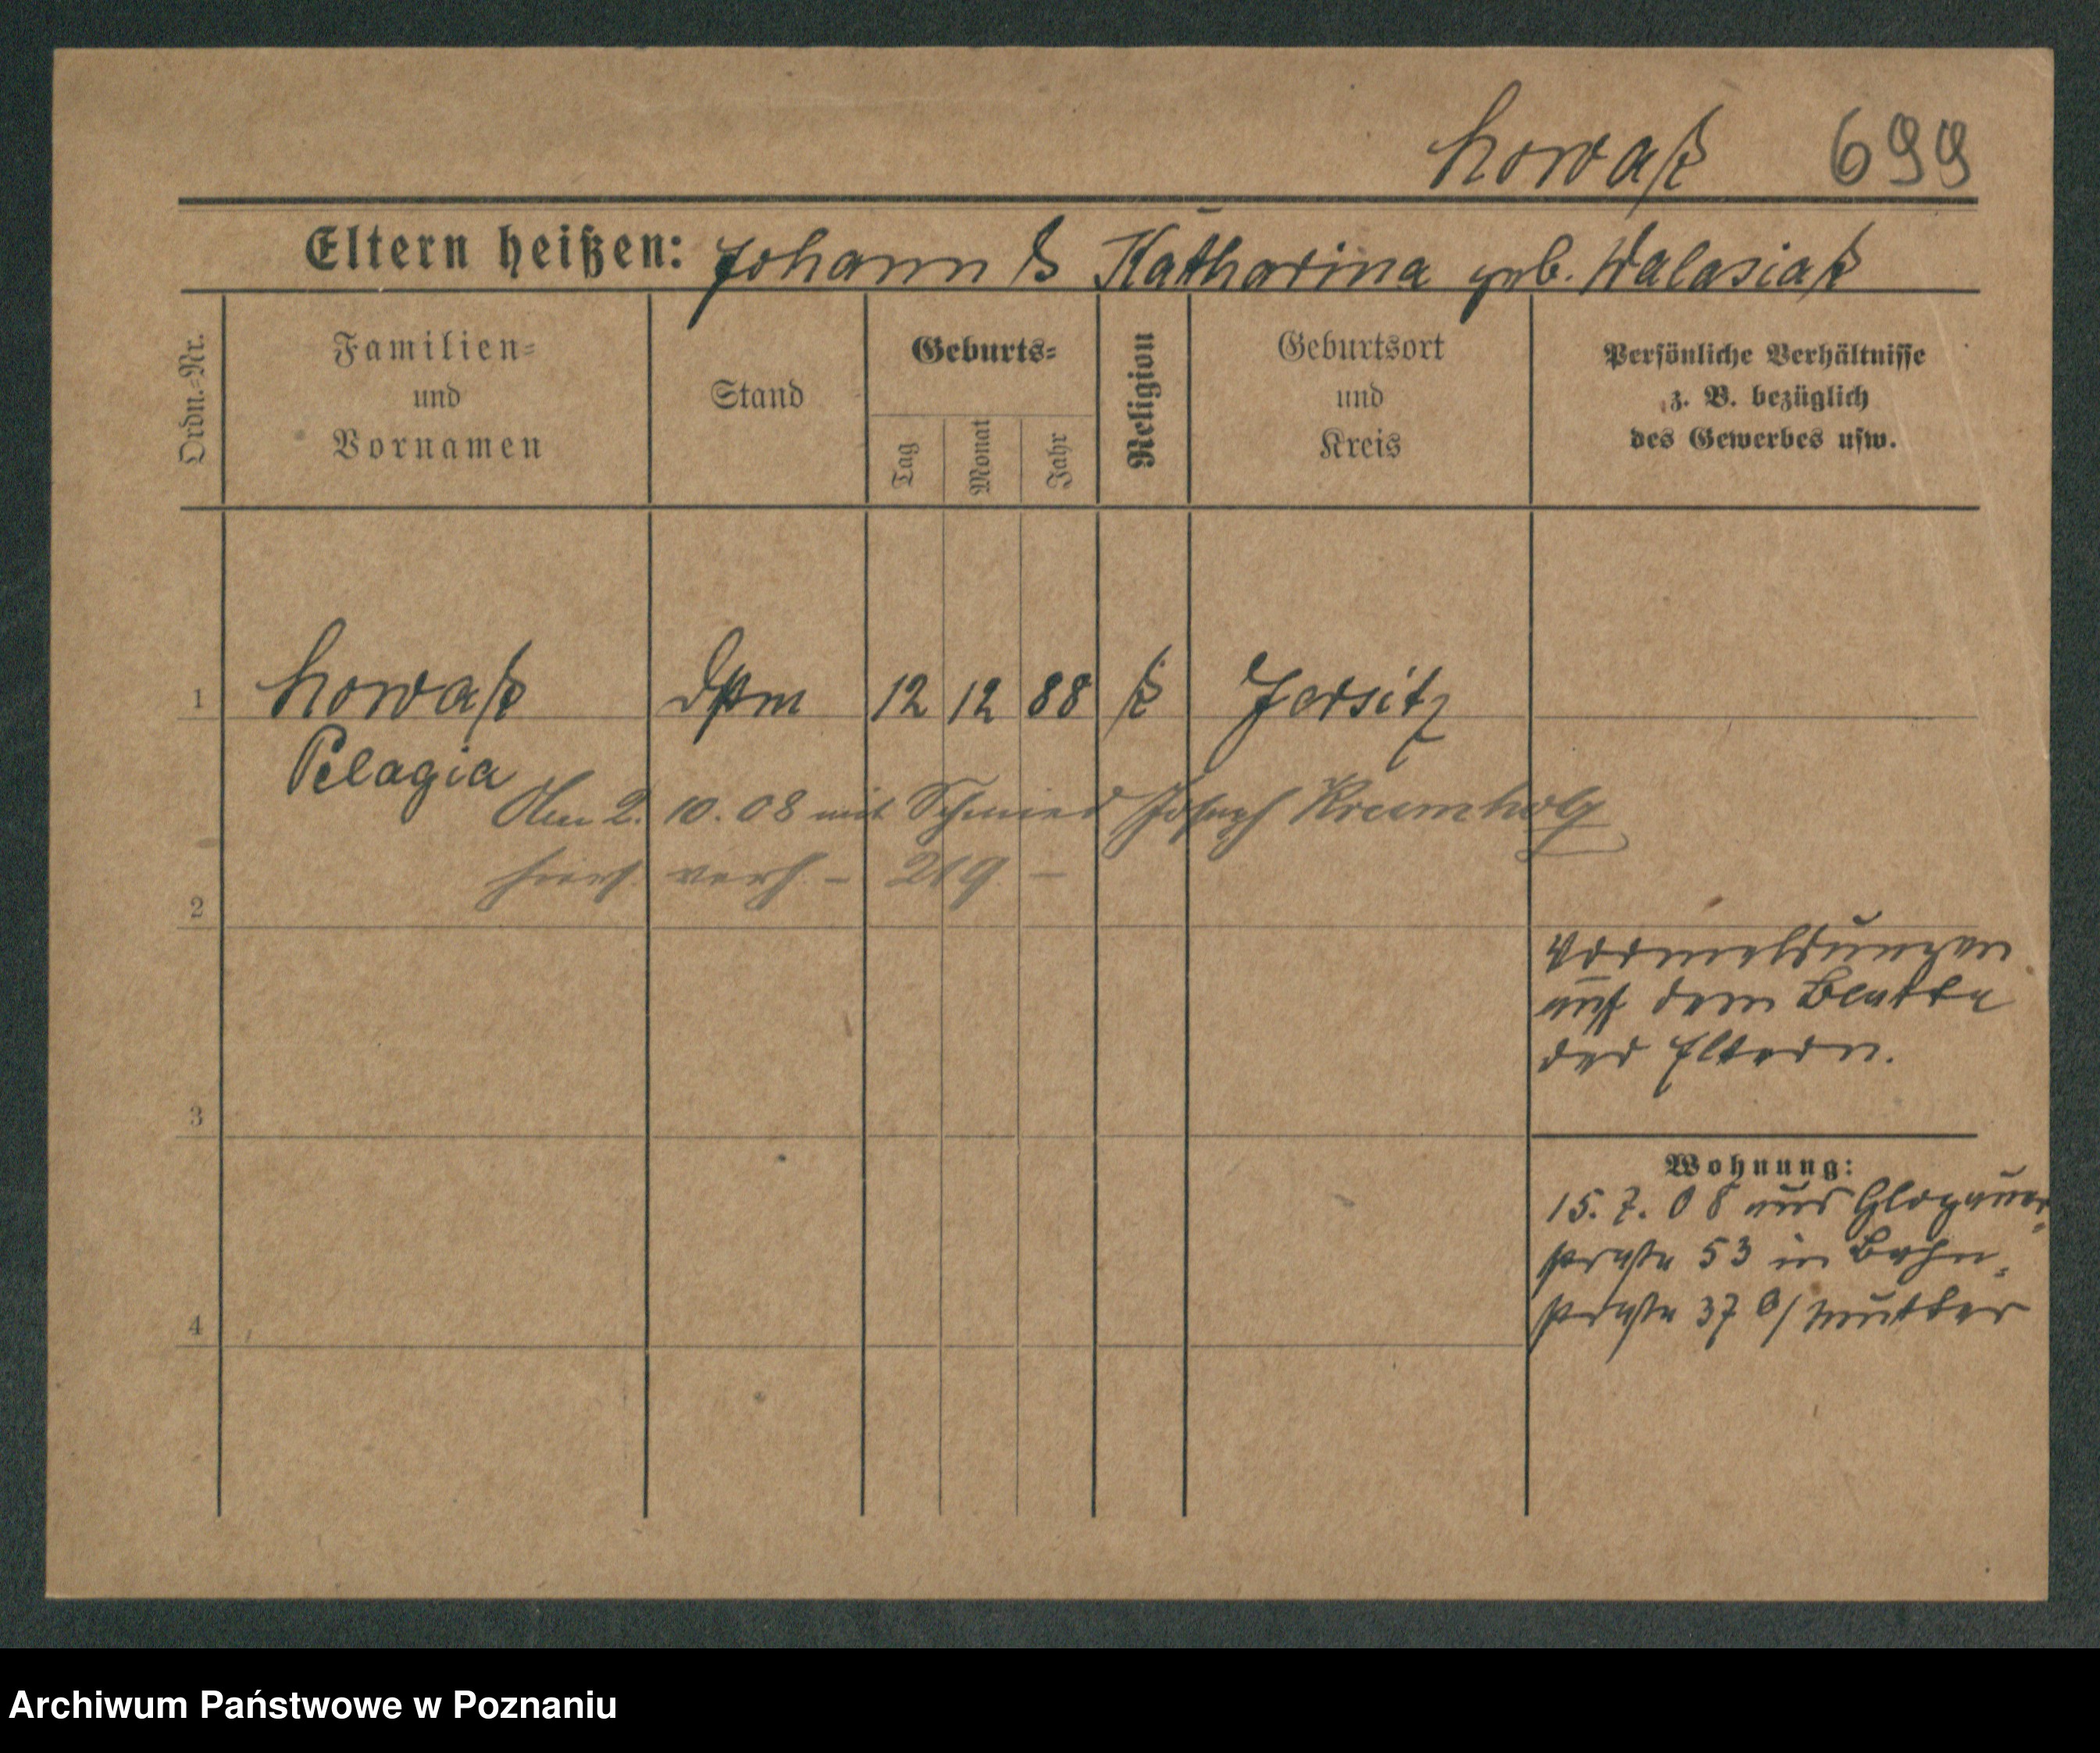 Nowak 699
Eltern heißen: Johann & Katharina geb. Walasiak
Ordn.-Nr.
Familien-
und
Vornamen
Stand
Geburts-
Tag
Monat
Jahr
Religion
Geburtsort
und
Kreis
Persönliche Verhältnisse
z. B. bezüglich
des Gewerbes usw.
1 Nowak 12 12 88 k Jersitz
Pelagia
Am 2. 10. 08 mit Schmied Joseph Krumholz
hiers. verh. - 219 -
2
Vormeldungen
auf dem Blatte
der Eltern.
3
Wohnung:
15. 7. 08 aus Glogauer-
straße 53 in Bahn-
straße 37 b/ Mutter
4
Archiwum Państwowe w Poznaniu